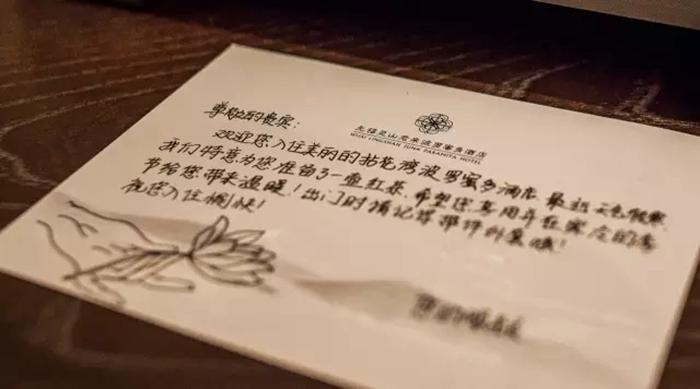 无锡灵山君来波罗蜜多酒店
WUXI LINGSHAN JUNA PARAMITA HOTEL
尊敬的贵宾：
欢迎您入住美丽的拈花湾波罗蜜多酒店，最近天
我们特意为您准备了一壶红茶，希望您享用并在寒冷的季
节给您带来温暖！出门时请记得带件外套哦！
祝您入住愉快！